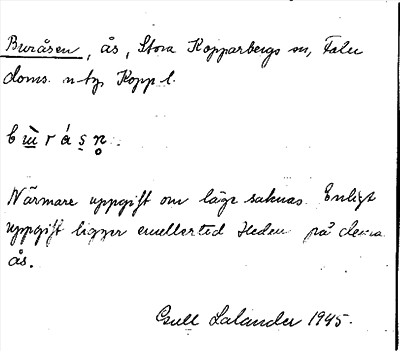 Buråsen, ås, Stora Kopparbergs sn, Falu
doms. n tg, Kopp l.
b ɯ̀ r á ṣ n̥.
Närmare uppgift om läge saknas. Enligt
uppgift ligger emellertid Heden på denna
ås.
Gull Lalander 1945.